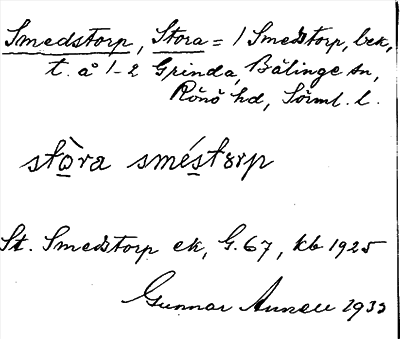 Smedstorp, Stora = 1 Smedstorp, bek,
t. å 1-2 Grinda, Bälinge sn,
Rönö hd, Sörml. l.
stò̲ra smés̲tɜrp
St. Smedstorp ek, G. 67, kb 1925
Gunnar 1933